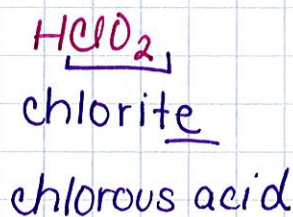 HClO₂
chlorite
chlorous acid